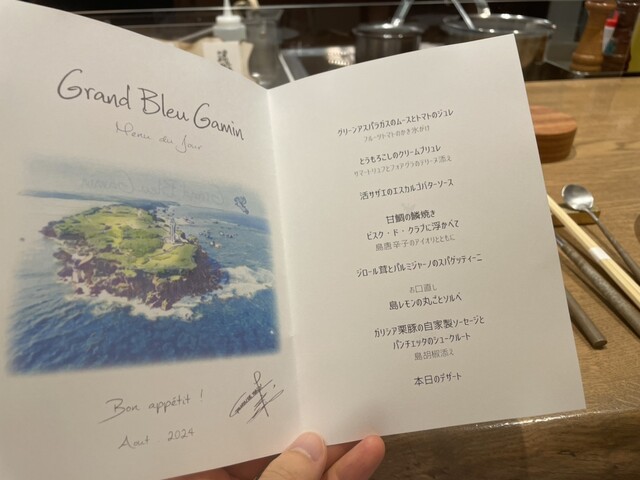 Grand Bleu Gamin
Menu du Jour
Bon appétit !
Aout 2024
グリーンアスパラガスのムースとトマトのジュレ
フルーツトマトのかき氷がけ
とうもろこしのクリームブリュレ
サマートリュフとフォアグラのテリーヌ添え
活サザエのエスカルゴバターソース
甘鯛の鱗焼き
ビスク・ド・クラブに浮かべて
島唐辛子のアイオリとともに
ジロール茸とパルミジャーノのスパゲッティーニ
お口直し
島レモンの丸ごとソルベ
ガリシア栗豚の自家製ソーセージと
パンチェッタのシュークルート
島胡椒添え
本日のデザート